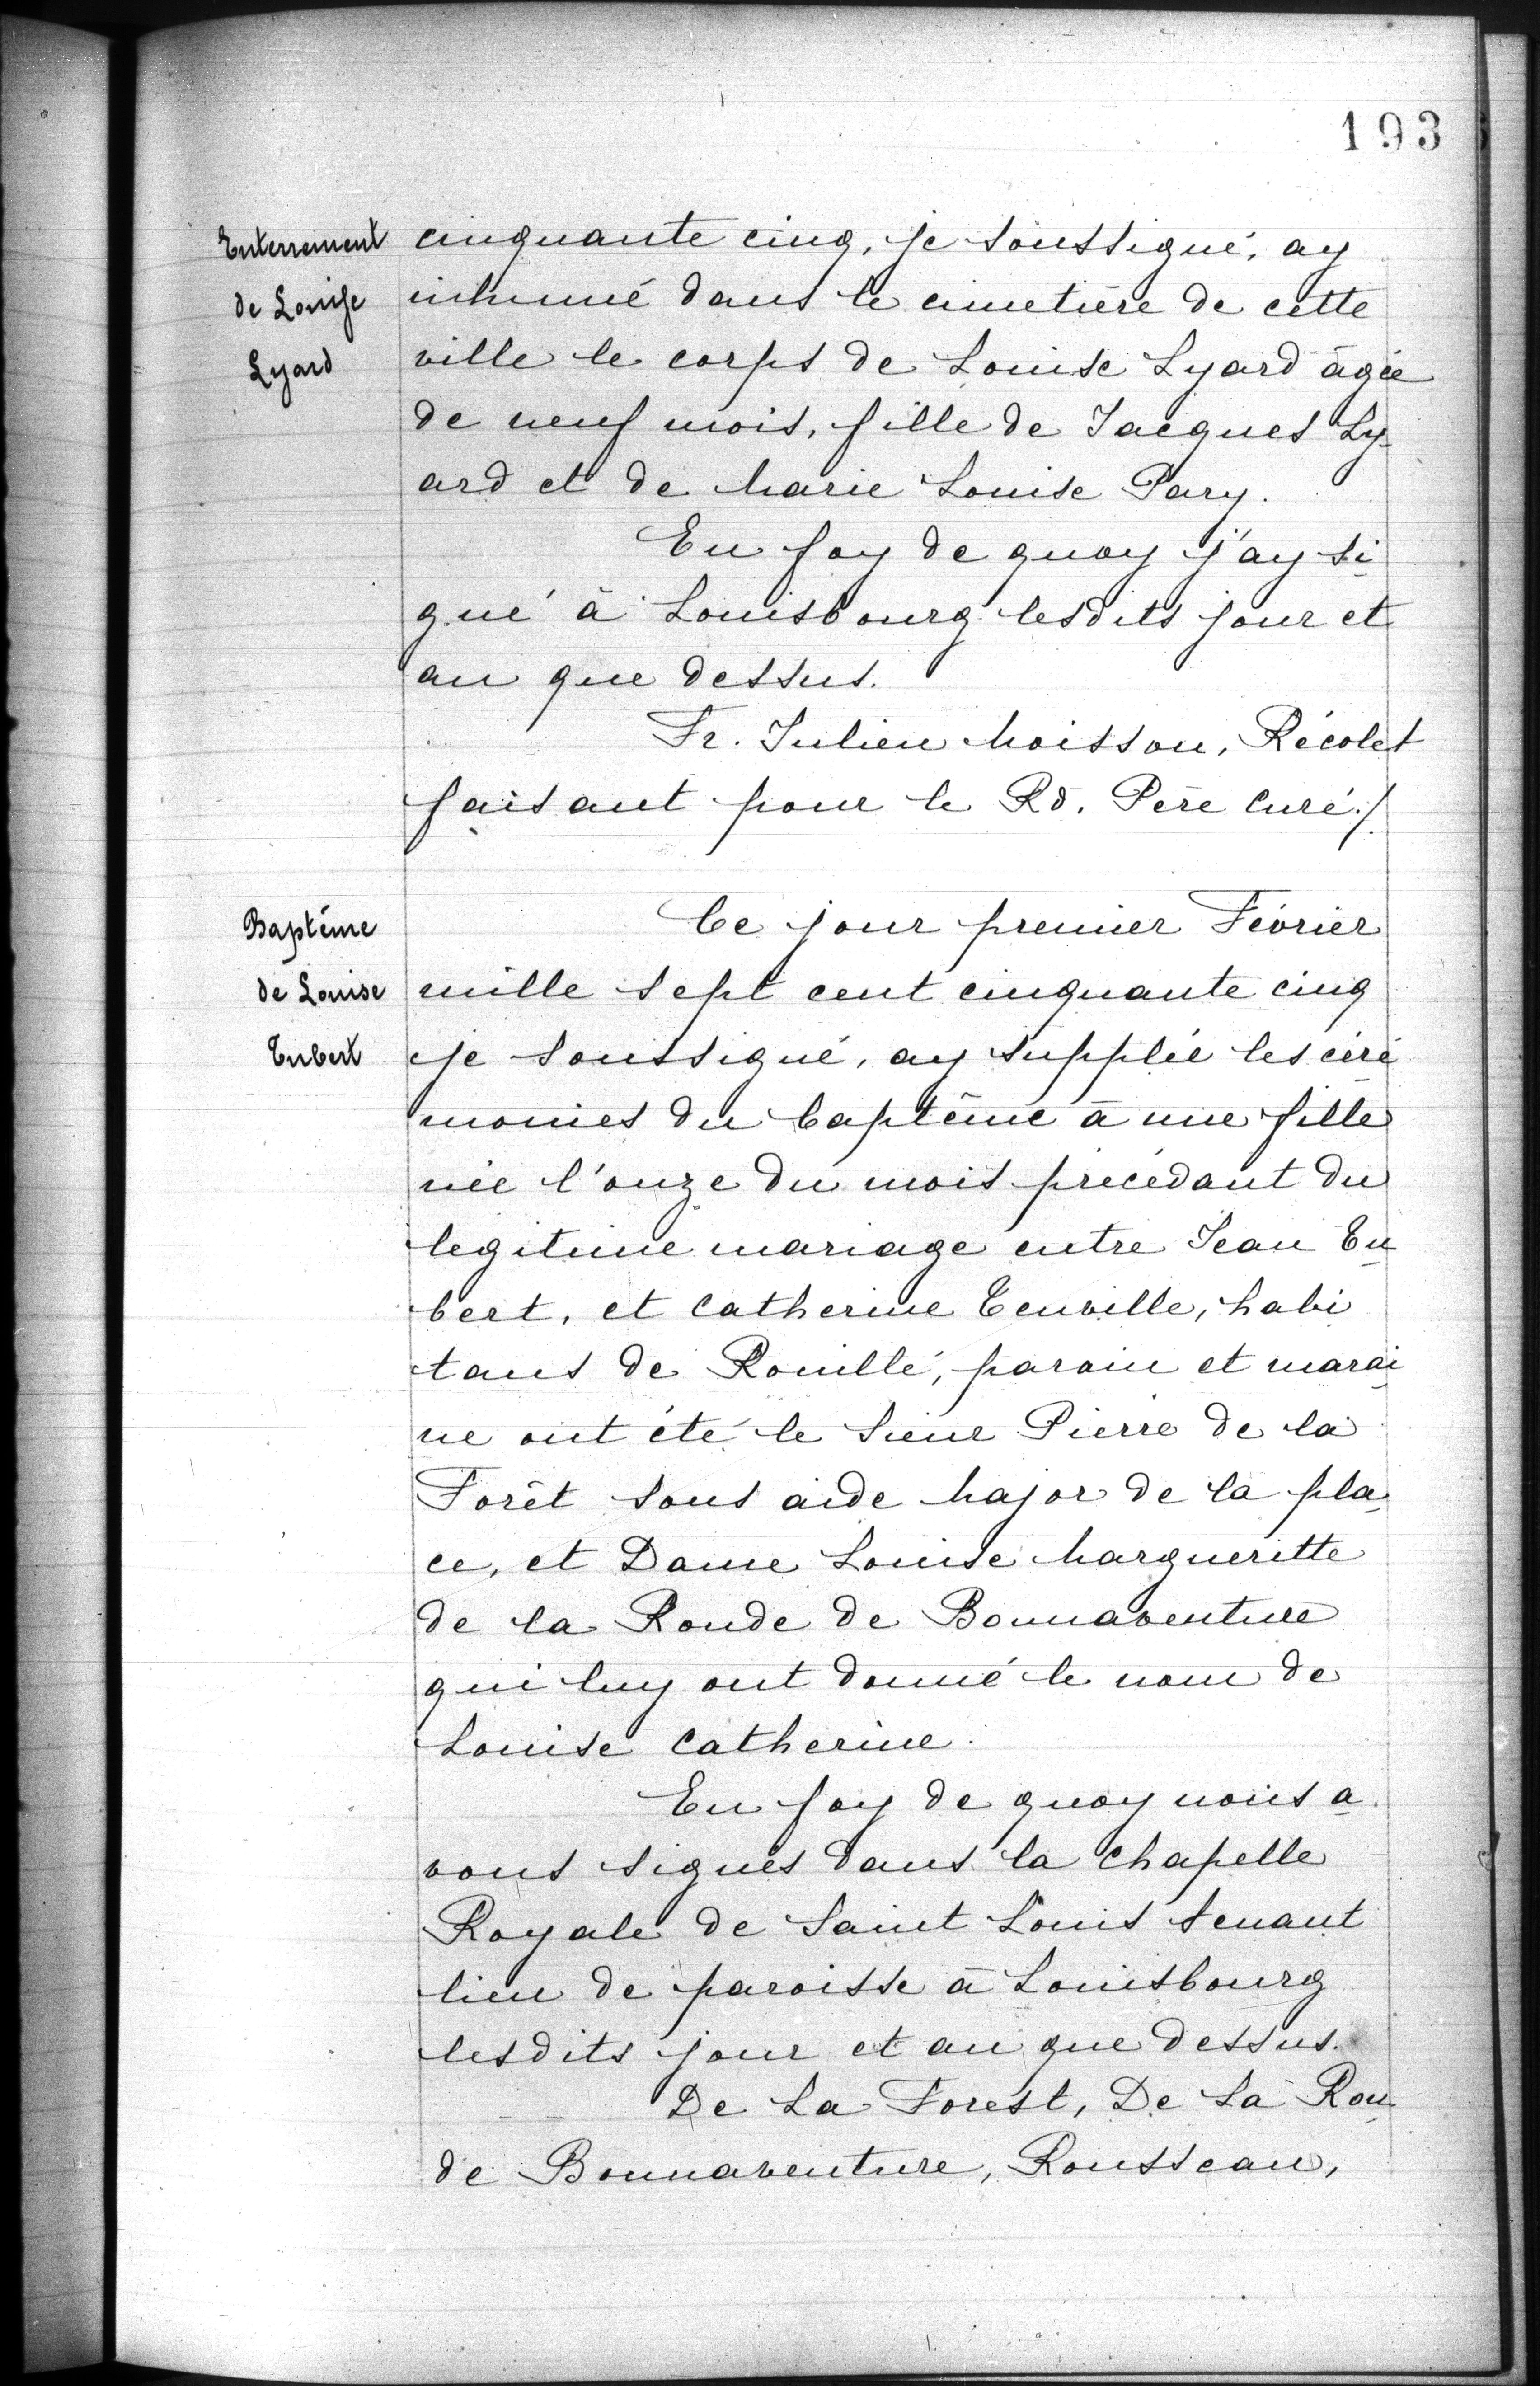 193
Enterrement
de Louise
Lyard
cinquante cinq, je soussigné, ay
inhumé dans le cimetière de cette
ville le corps de Louise Lyard âgée
de neuf mois, fille de Jacques Ly-
ard et de Marie Louise Pary.
En foy de quoy j'ay si-
gné à Louisbourg lesdits jour et
an que dessus.
Fr. Julien Moisson, Récolet
faisant pour le Rd. Père Curé./
Baptême
de Louise
Eubert
Ce jour premier Février
mille sept cent cinquante cinq
je soussigné, ay supplée les céré
monies du baptême à une fille
née l'onze du mois précédant du
legitime mariage entre Jean Eu-
bert, et Catherine Tenville, habi
tans de Rouillé, parain et marai-
ne ont été le Sieur Pierre de la
Forêt sous aide Major de la pla-
ce, et Dame Louise Margueritte
de la Ronde de Bonnaventure
qui luy ont donné le nom de
Louise Catherine.
En foy de quoy nous a-
vons signés dans la Chapelle
Royale de Saint Louis tenant
lieu de paroisse à Louisbourg
lesdits jour et an que dessus.
De La Forest, De La Ron-
de Bonnaventure, Rousseau,